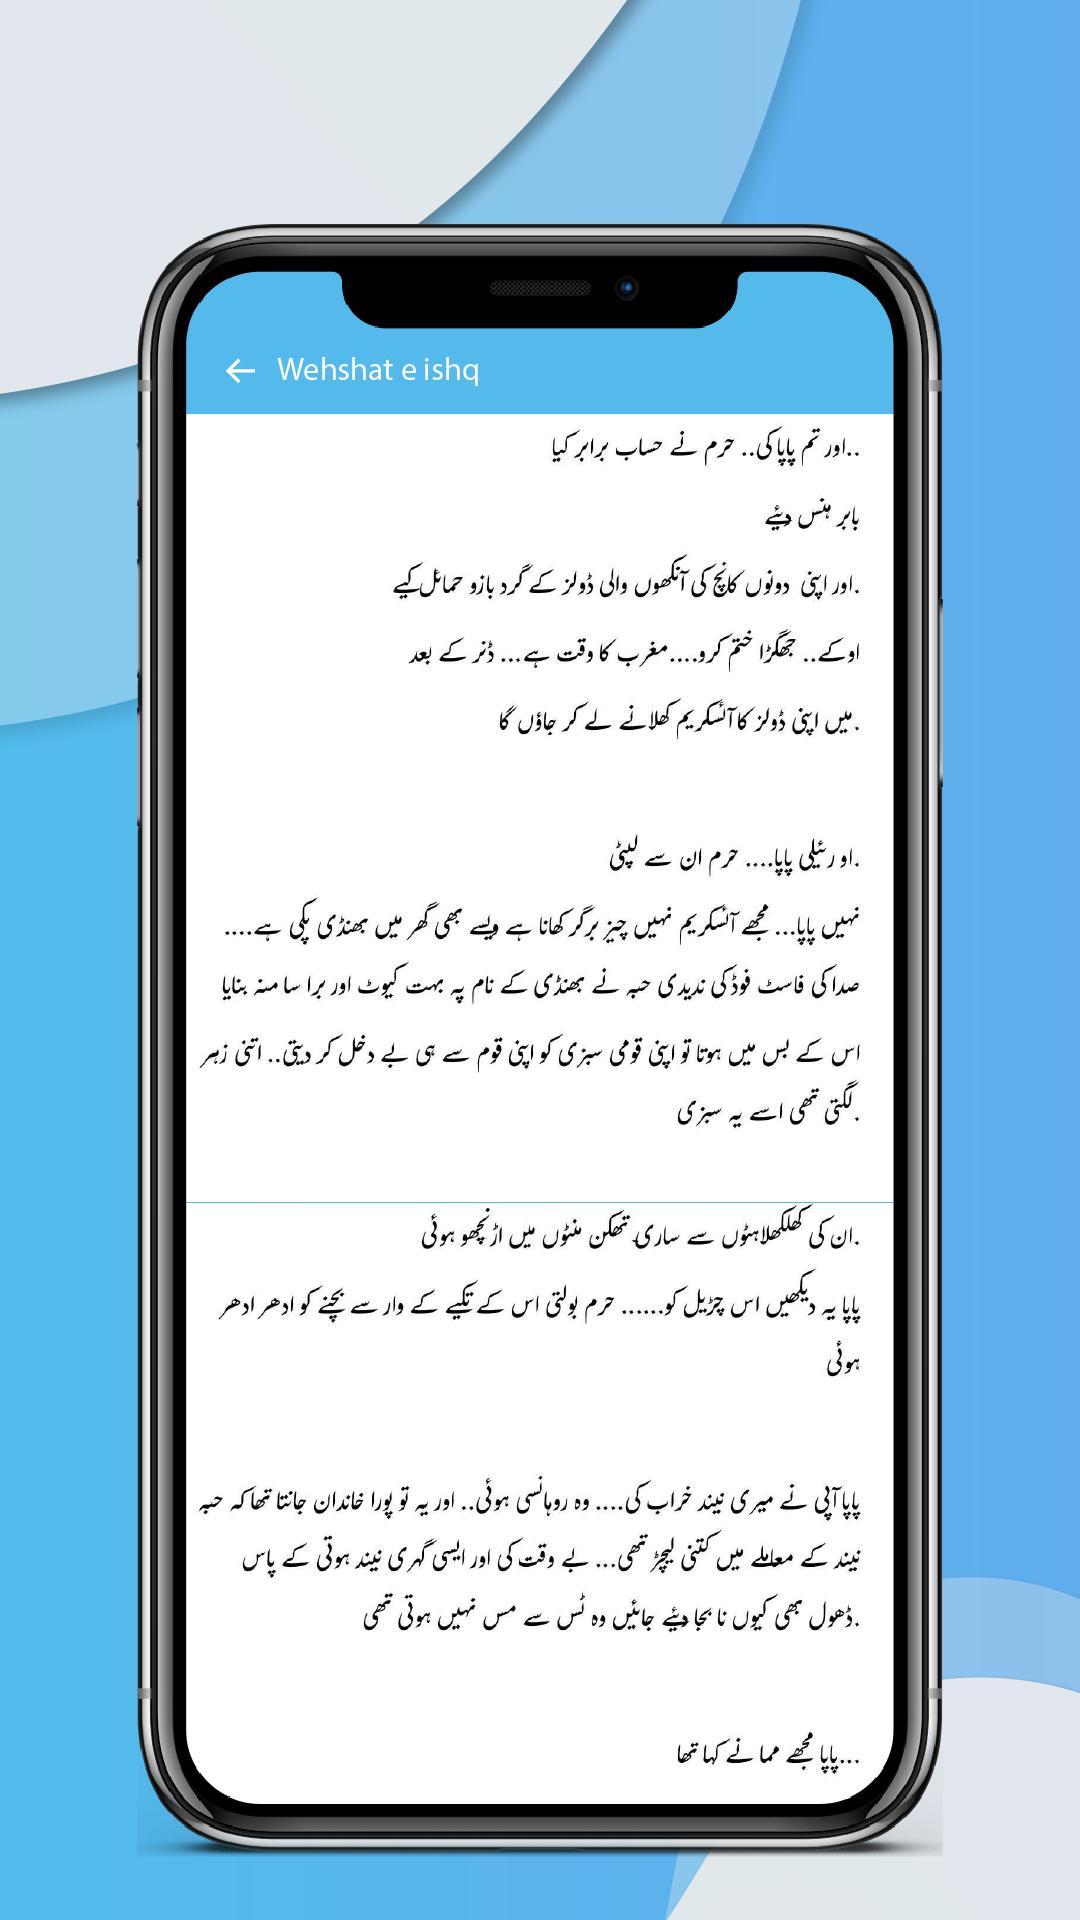 Wehshat e ishq
..اور تم پاپا کی.. حرم نے حساب برابر کیا
بابر ہنس دیئے
.اور اپنی دونوں کانچ کی آنکھوں والی ڈولز کے گرد بازو حمائل کیے
اوکے.. جھگڑا ختم کرو....مغرب کا وقت ہے... ڈنر کے بعد
.میں اپنی ڈولز کا آئسکریم کھلانے لے کر جاؤں گا
.او رئیلی پاپا.... حرم ان سے لپٹی
نہیں پاپا... مجھے آئسکریم نہیں چیز برگر کھانا ہے ویسے بھی گھر میں بھنڈی پکی ہے....
صدا کی فاسٹ فوڈ کی ندیدی حبہ نے بھنڈی کے نام پہ بہت کیوٹ اور برا سا منہ بنایا
اس کے بس میں ہوتا تو اپنی قومی سبزی کو اپنی قوم سے ہی بے دخل کر دیتی.. اتنی زہر
.لگتی تھی اسے یہ سبزی
.ان کی کھلکھلاہٹوں سے ساری تھکن منٹوں میں اڑنچھو ہوئی
پاپا یہ دیکھیں اس چڑیل کو...... حرم بولتی اس کے تکیے کے وار سے بچنے کو ادھر ادھر
ہوئی
پاپا آپی نے میری نیند خراب کی.... وہ روہانسی ہوئی.. اور یہ تو پورا خاندان جانتا تھا کہ حبہ
نیند کے معاملے میں کتنی لیچڑ تھی... بے وقت کی اور ایسی گہری نیند ہوتی کے پاس
.ڈھول بھی کیوں نا بجا دیئے جائیں وہ ٹس سے مس نہیں ہوتی تھی
...پاپا مجھے مما نے کہا تھا